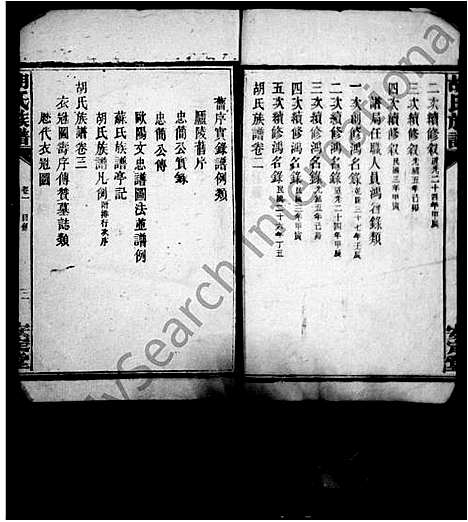 二次續修叙道光二十四年甲辰
三次續修叙光緒五年己卯
四次續修叙民國三年甲寅
譜局任職人員鴻名錄類
一次創修鴻名錄乾隆三十七年壬辰
二次續修鴻名錄道光二十四年甲辰
三次續修鴻名錄光緒五年己卯
四次續修鴻名錄民國三年甲寅
五次續修鴻名錄民國二十六年丁丑
胡氏族譜卷二
舊序實錄譜例類
廬陵舊序
忠簡公實錄
忠簡公傳
歐陽文忠譜圖法並譜例
蘇氏族譜亭記
胡氏族譜凡例附排行次序
胡氏族譜卷三
衣冠圖壽序傳贊墓誌類
歷代衣冠圖
胡氏族譜
卷一
目錄
MySearch International